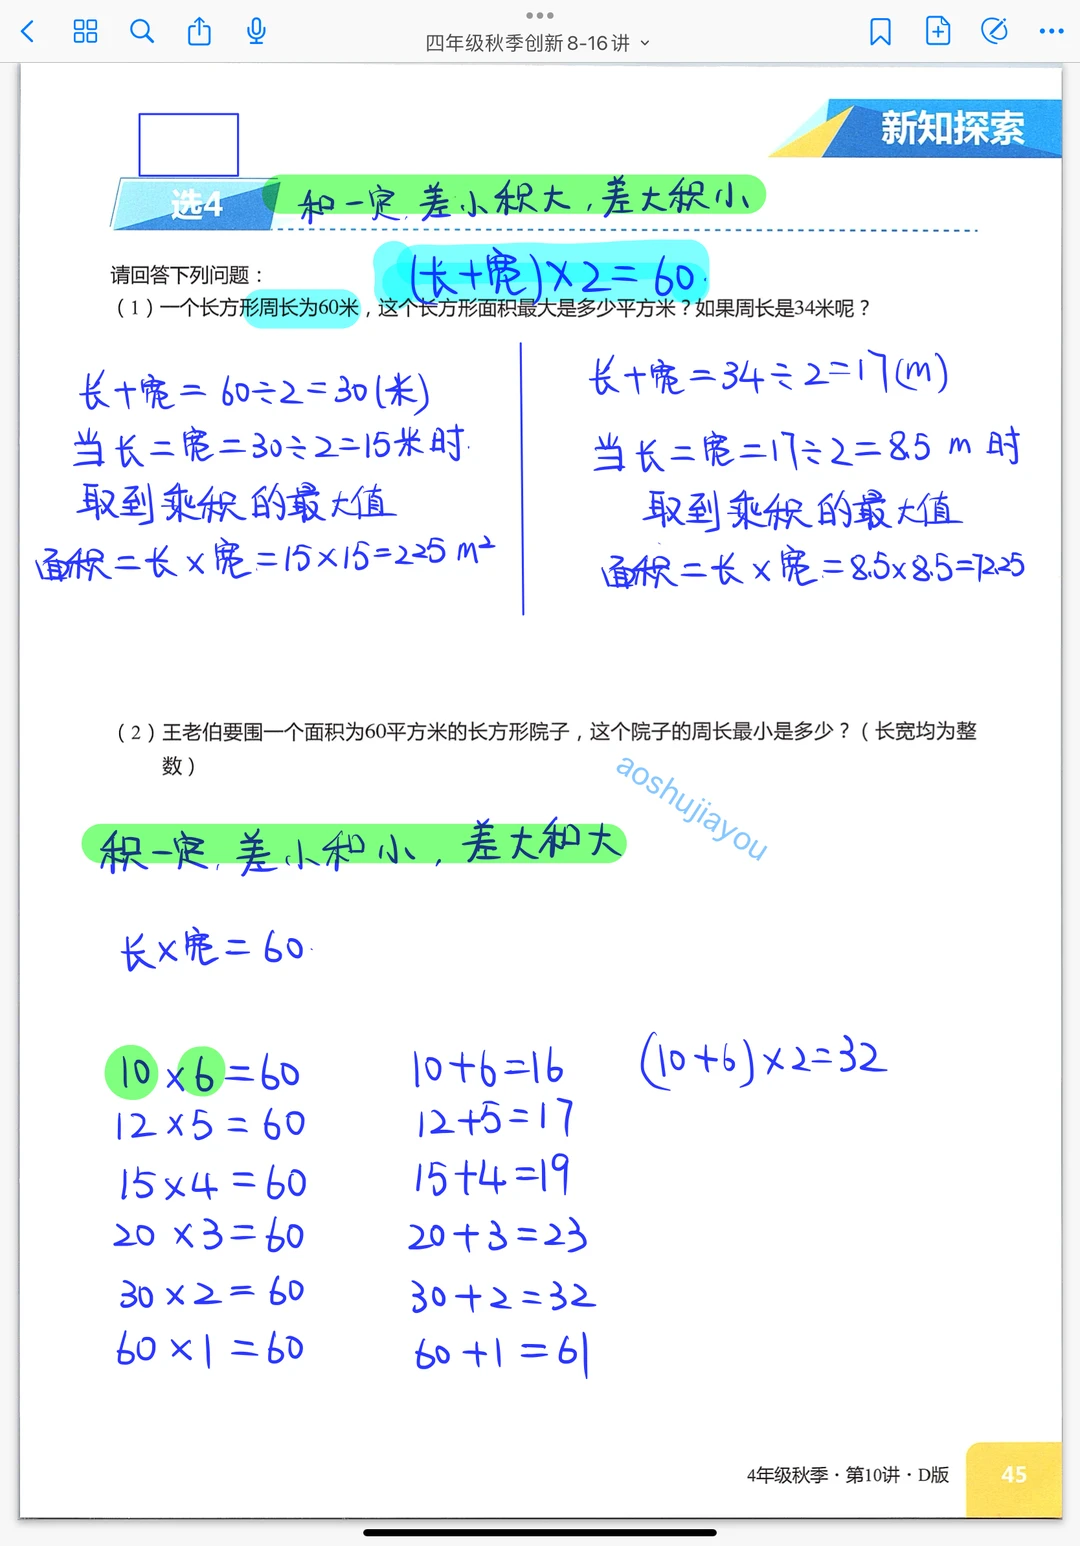 四年级秋季创新8-16讲
新知探索
选4
和一定,差小积大,差大积小
请回答下列问题：
(长+宽)×2=60.
（1）一个长方形周长为60米，这个长方形面积最大是多少平方米？如果周长是34米呢？
长+宽=60÷2=30(米)
当长=宽=30÷2=15米时.
取到乘积的最大值
面积=长×宽=15×15=225m²
长+宽=34÷2=17(m)
当长=宽=17÷2=8.5 m 时
取到乘积的最大值
面积=长×宽=8.5×8.5=72.25
（2）王老伯要围一个面积为60平方米的长方形院子，这个院子的周长最小是多少？（长宽均为整
数）
aoshujiayou
积一定,差小和小,差大和大
长×宽=60.
10×6=60 10+6=16 (10+6)×2=32
12×5=60 12+5=17
15×4=60 15+4=19
20×3=60 20+3=23
30×2=60 30+2=32
60×1=60 60+1=61
4年级秋季·第10讲·D版 45